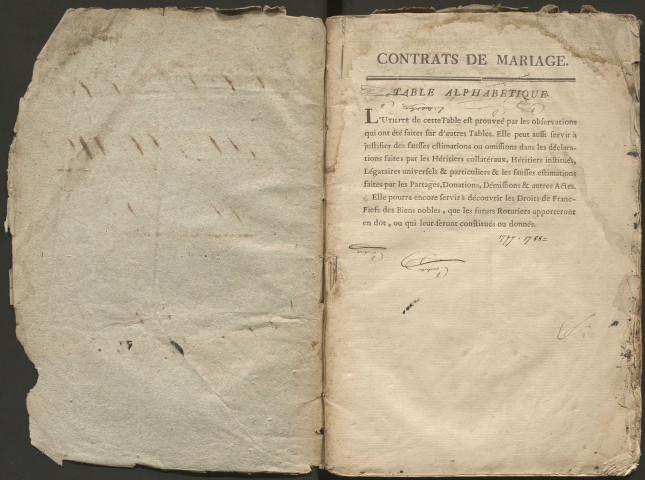 CONTRATS DE MARIAGE.
TABLE ALPHABETIQUE
L'UTILITÉ de cette Table est prouveé par les observations
qui ont été faites sur d'autres Tables. Elle peut aussi servir à
justifier des fausses estimations ou omissions dans les déclara-
tions faites par les Héritiers collatéraux, Héritiers institués,
Légataires universels & particuliers & les fausses estimations
faites par les Partages, Donations, Démissions & autres Actes.
Elle pourra encore servir à découvrir les Droits de Franc-
Fiefs des Biens nobles, que les futurs Roturiers apporteront
en dot, ou qui leur seront constitués ou donnés.